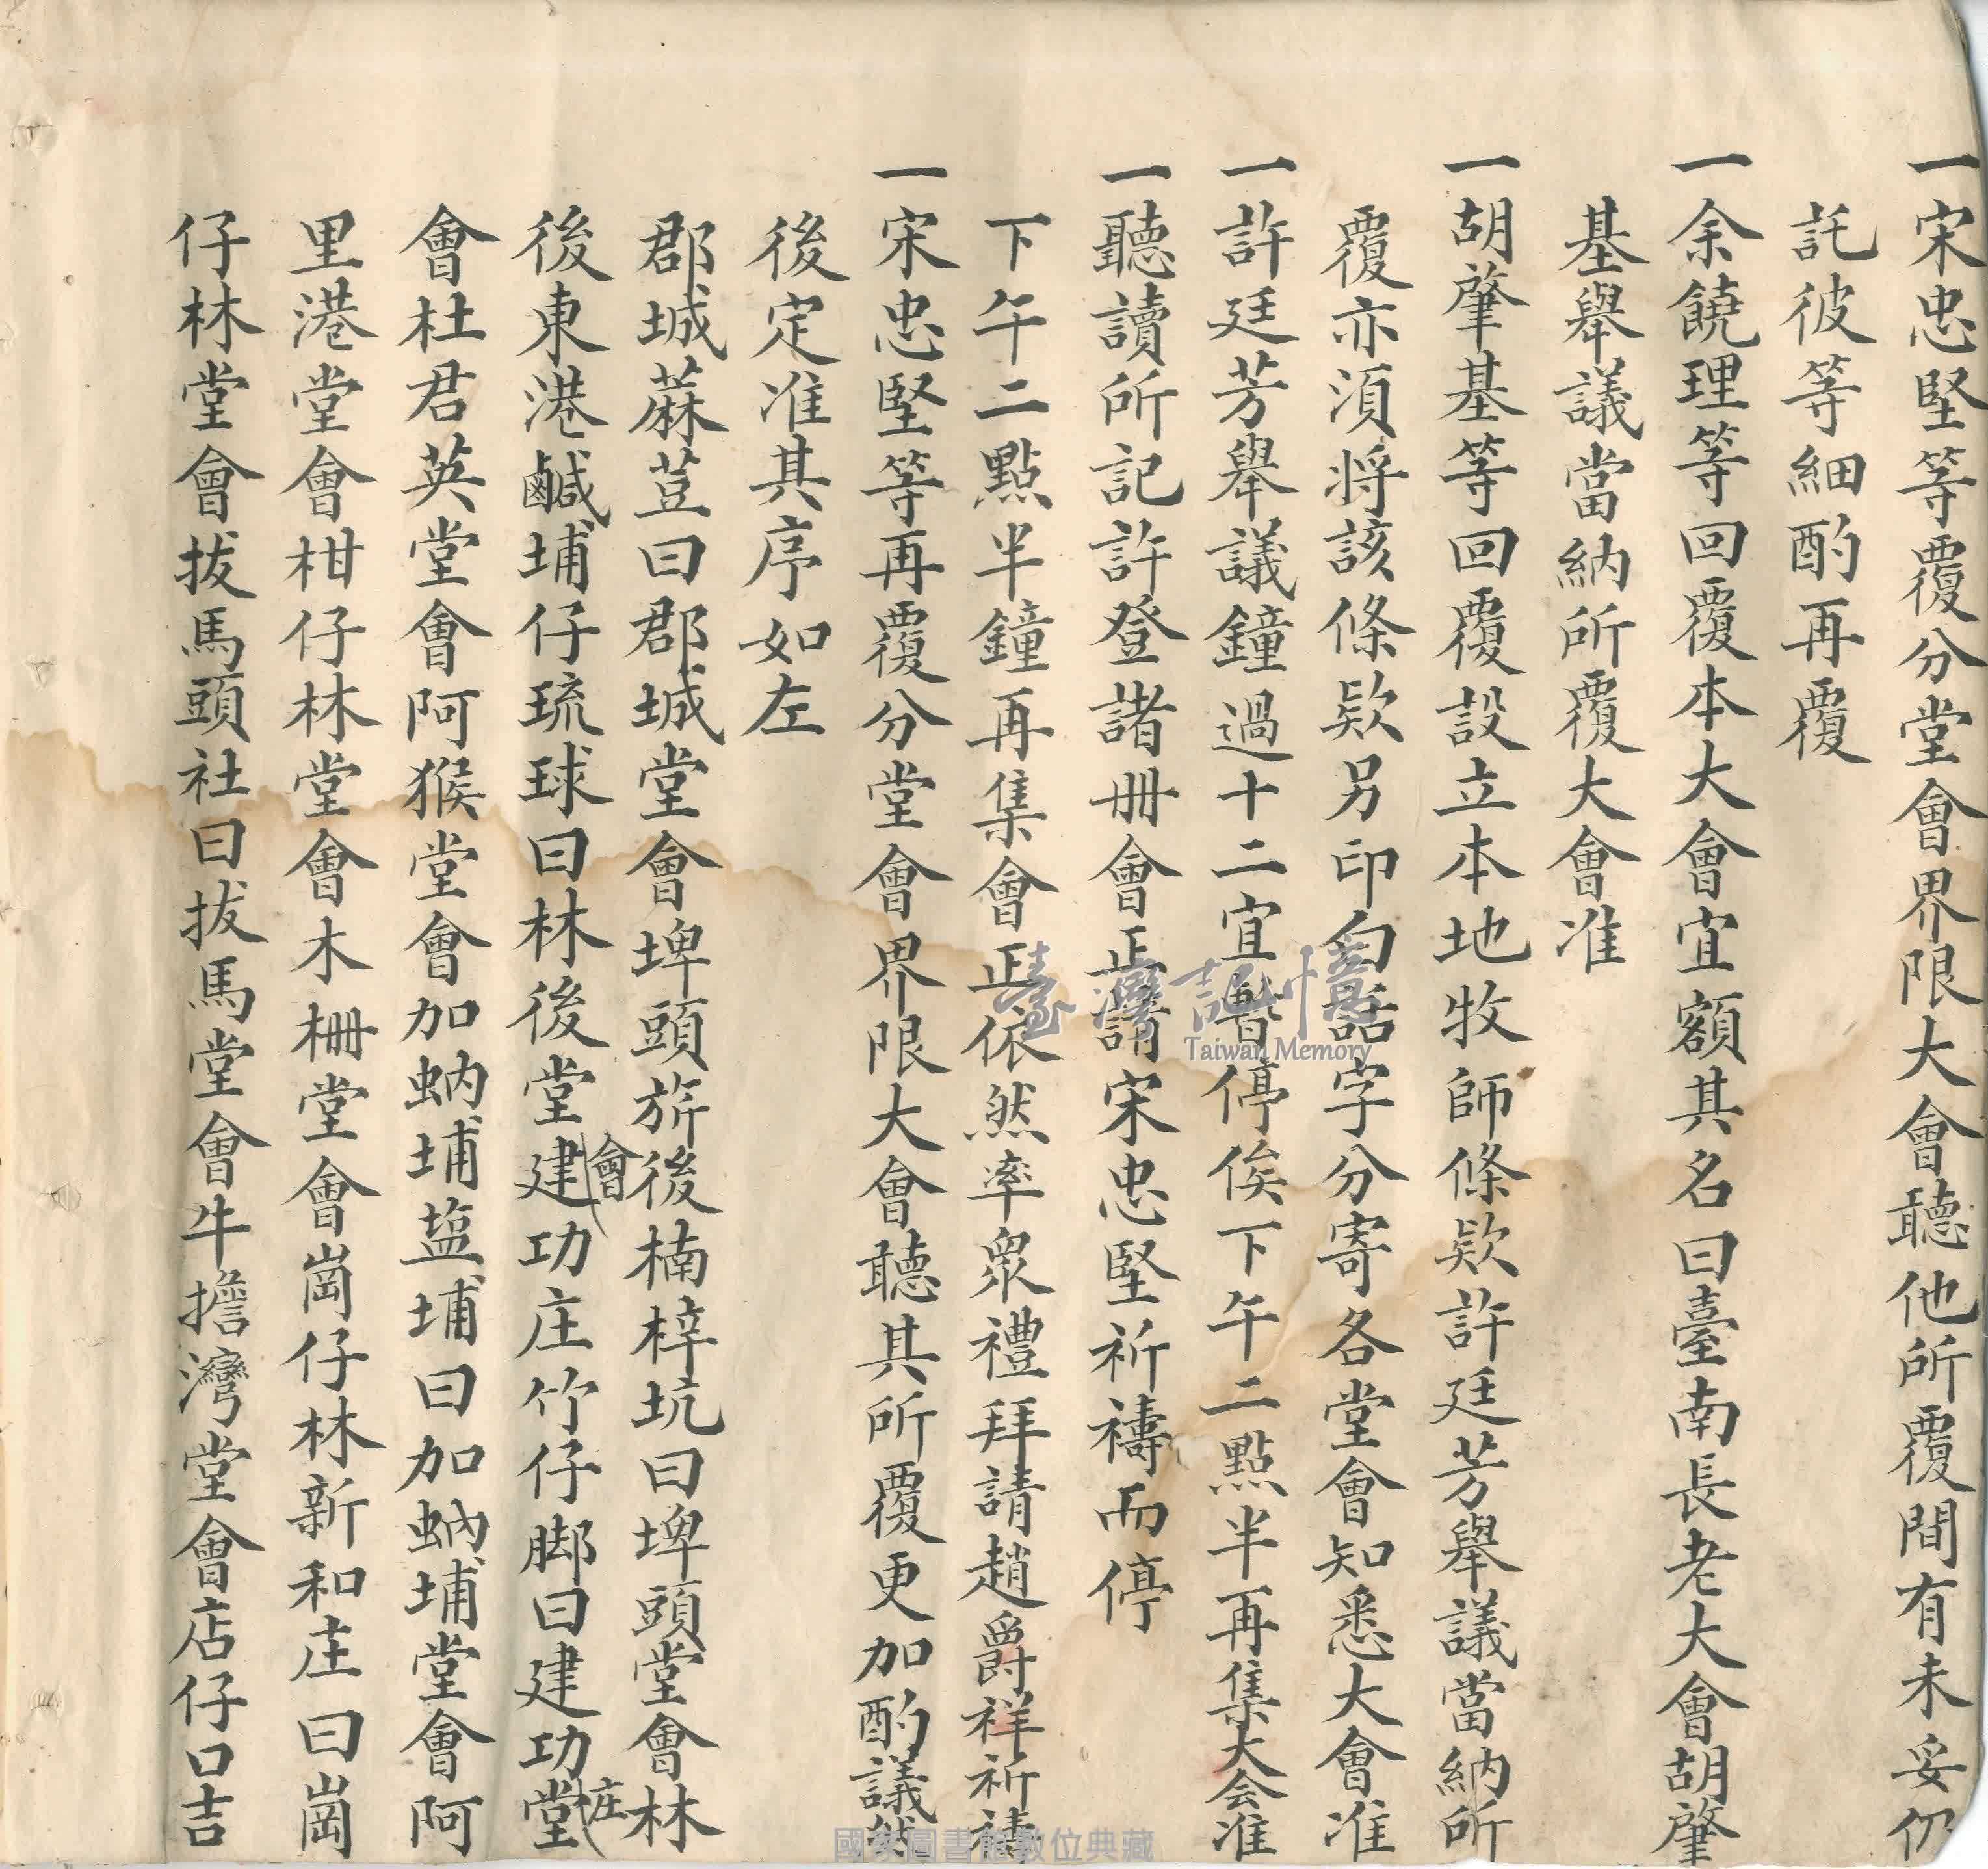 一宋忠堅等覆分堂會界限大會聽他所覆間有未妥仍
託彼等細酌再覆
一余饒理等回覆本大會宜額其名曰臺南長老大會胡肇
基舉議當納所覆大會准
一胡肇基等回覆設立本地牧師條欵許廷芳舉議當納所
覆亦須将該條欵另印白話字分寄各堂會知悉大會准
一許廷芳舉議鐘過十二宜暫停俟下午二點半再集大会准
一聽讀所記許登諸冊會正請宋忠堅祈禱而停
下午二點半鐘再集會正依然率眾禮拜請趙爵祥祈禱
一宋忠堅等再覆分堂會界限大會聽其所覆更加酌議然
後定准其序如左
郡城蔴荳曰郡城堂會埤頭旂後楠梓坑曰埤頭堂會林
後東港鹹埔仔琉球曰林後堂會建功庄竹仔脚曰建功庄堂
會杜君英堂會阿猴堂會加蚋埔塩埔曰加蚋埔堂會阿
里港堂會柑仔林堂會木柵堂會崗仔林新和庄曰崗
仔林堂會拔馬頭社曰拔馬堂會牛擔灣堂會店仔口吉
臺灣記憶
Taiwan Memory
國家圖書館數位典藏